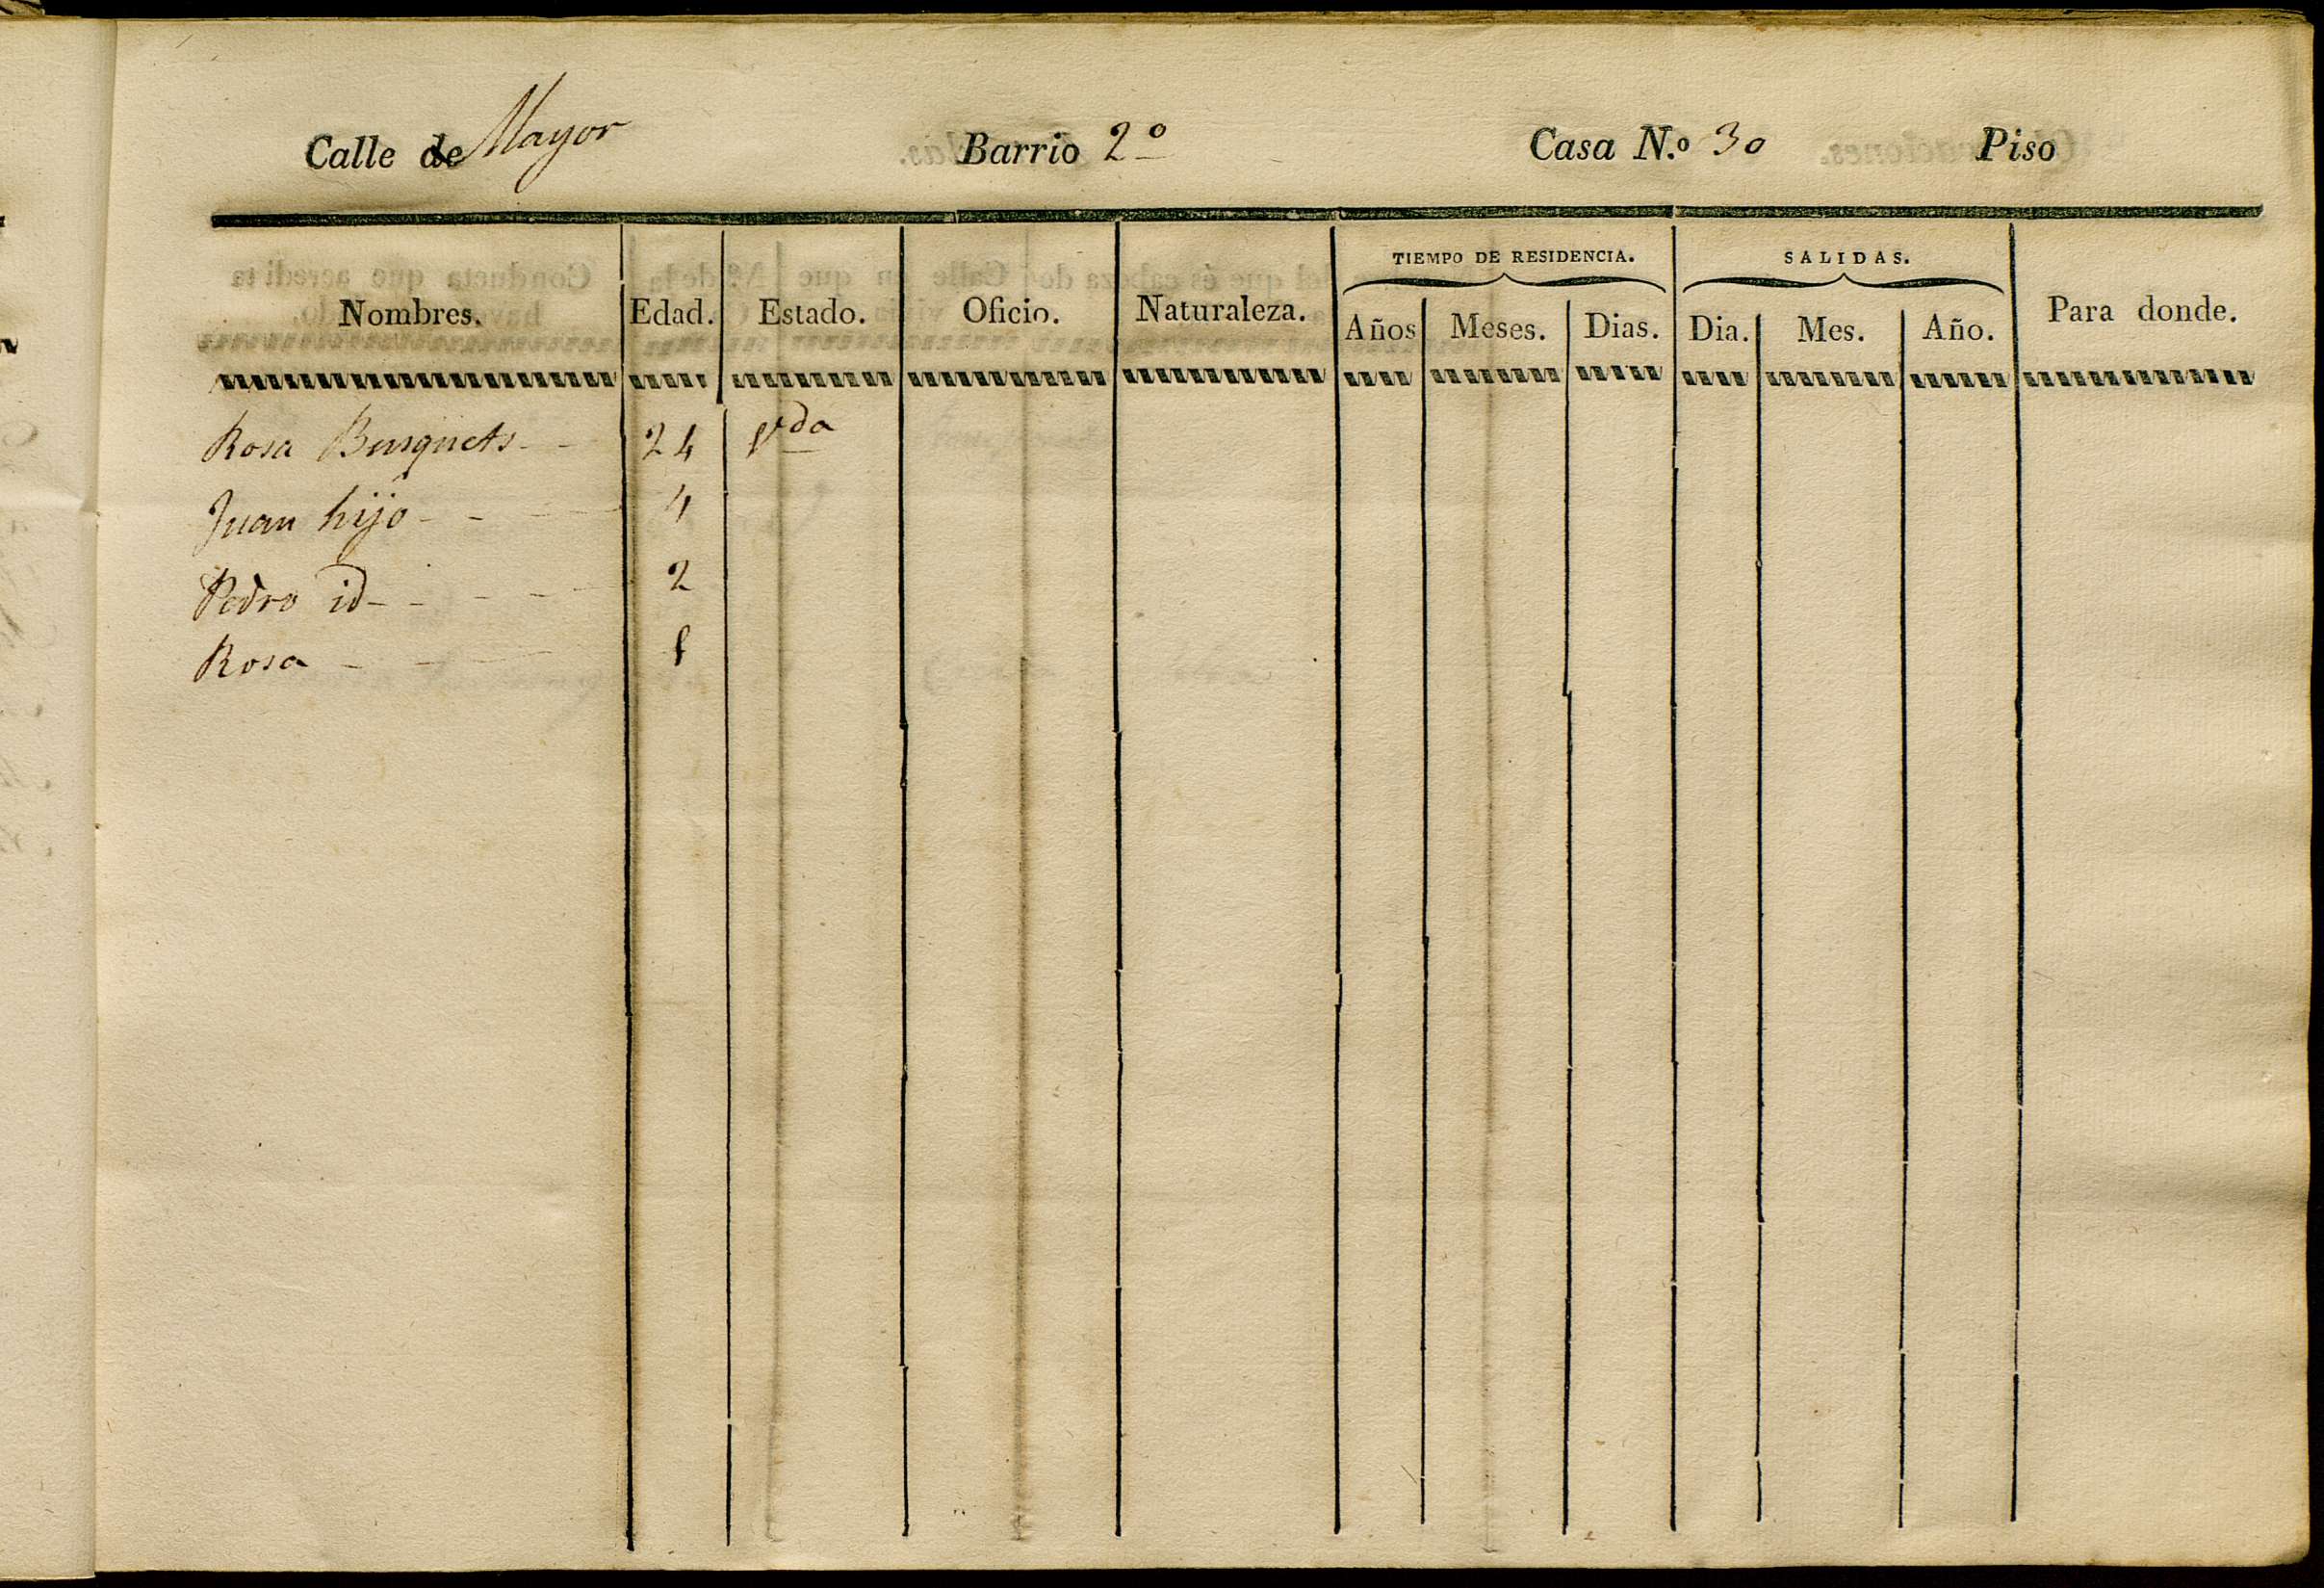 Calle de Mayor Barrio 2º Casa N.º 30 Piso
TIEMPO DE RESIDENCIA. SALIDAS.
Nombres. Edad. Estado. Oficio. Naturaleza. Años Meses. Dias. Dia. Mes. Año. Para donde.
Rosa Busquets - - 24 Vda
Juan hijo - - - - 4
Pedro id - - - - - 2
Rosa - - - - 1